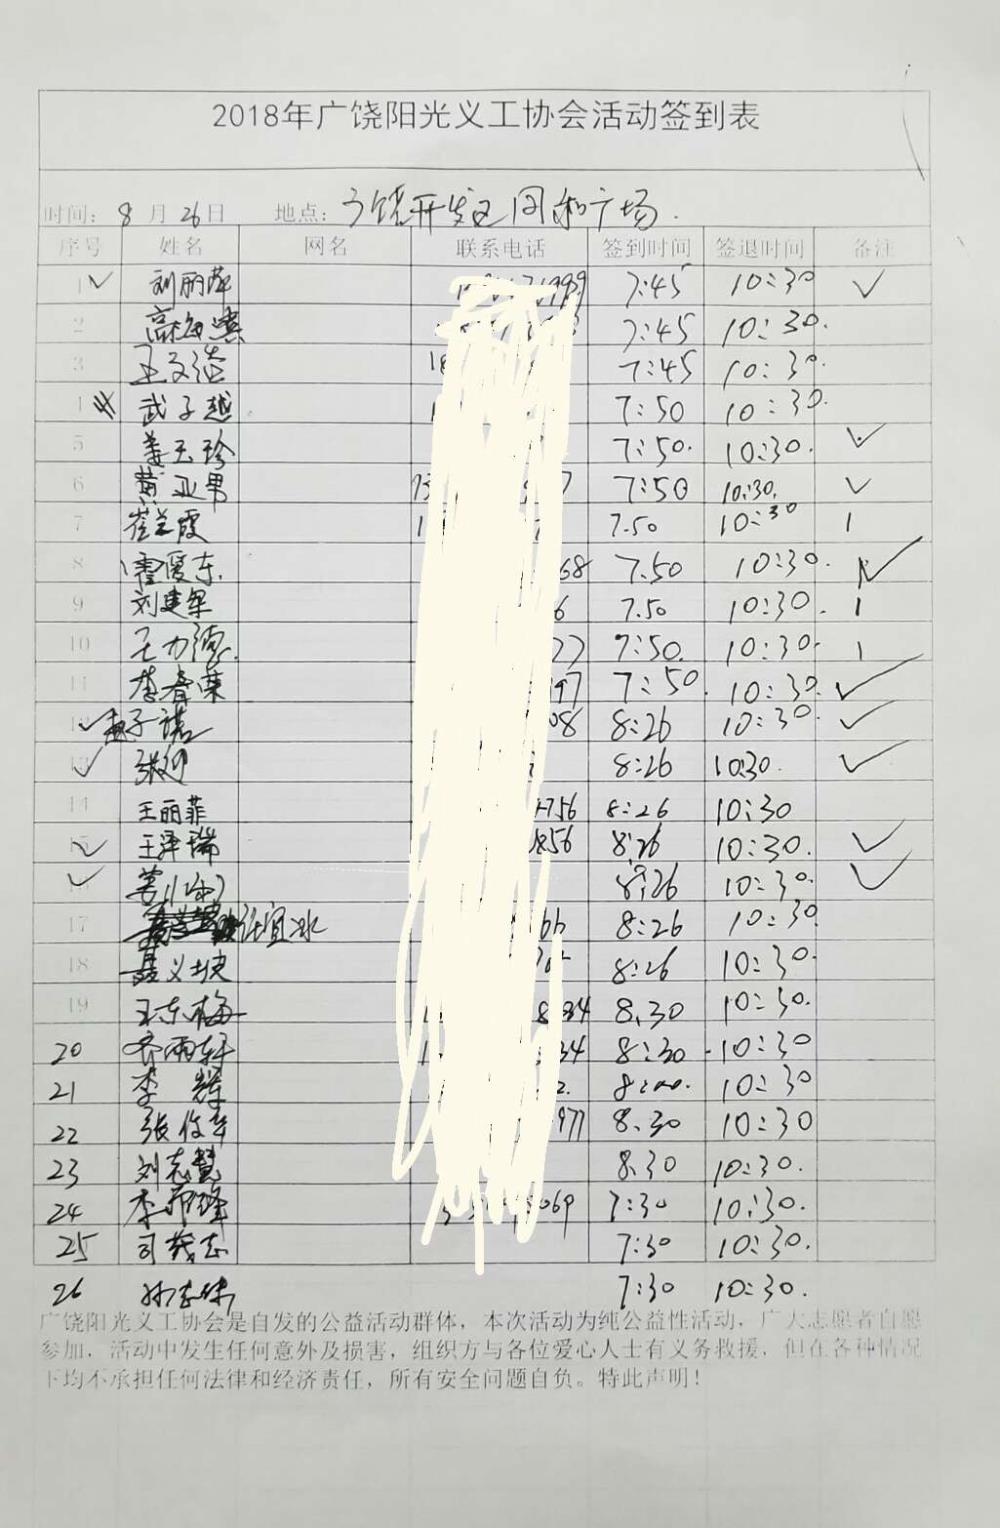 2018年广饶阳光义工协会活动签到表
时间: 8 月 26 日 地点: 广饶开发区同和广场.
序号 姓名 网名 联系电话 签到时间 签退时间 备注
1 ✓ 刘丽萍 999 7:45 10:30 ✓
2 7:45 10:30.
3 王文 18 7:45 10:30.
4 武子越 1 7:50 10:30.
5 姜玉珍 7:50. 10:30. ✓
6 黄亚男 13 7 7:50 10:30. ✓
7 崔兰霞 1 7.50 10:30 1
8 霍爱东. 68 7.50 10:30. ✓
9 刘建军 6 7.50 10:30. 1
10 王力德. 77 7:50. 10:30. 1
11 李春荣 97 7:50. 10:30. ✓
12 ✓ 赵子诺 08 8:26 10:30. ✓
13 ✓ 张 8:26 10:30. ✓
14 王丽菲 756 8:26 10:30
15 ✓ 王泽瑞 856 8:26 10:30. ✓
16 ✓ 姜 8:26 10:30. ✓
17 许宜冰 66 8:26 10:30.
18 聂义 8:26 10:30.
19 王东梅 8 34 8.30 10:30.
20 齐雨轩 1 34 8:30 10:30
21 李 辉 2. 8:00. 10:30
22 张俊 977 8.30 10:30
23 刘志慧 8.30 10:30.
24 李 069 7:30 10:30.
25 司 志 7:30 10:30.
26 孙 7:30 10:30.
广饶阳光义工协会是自发的公益活动群体，本次活动为纯公益性活动，广大志愿者自愿
参加，活动中发生任何意外及损害，组织方与各位爱心人士有义务救援，但在各种情况
下均不承担任何法律和经济责任，所有安全问题自负。特此声明！